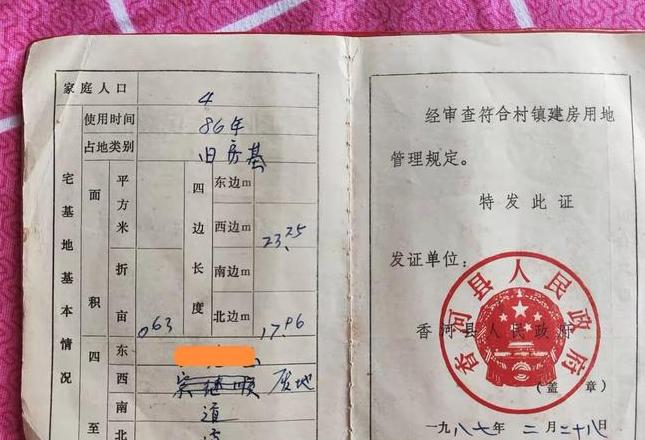 家庭人口 4
使用时间 86年
占地类别 旧房基
宅基地基本情况
面积
平方米
折亩 0.63
四边长度
东边m
西边m 23.25
南边m
北边m 17.96
四至
东
西 废地
南 道
北
经审查符合村镇建房用地
管理规定。
特发此证
发证单位：
香河县人民政府
香河县人民政府
（盖章）
一九八七年二月二十八日